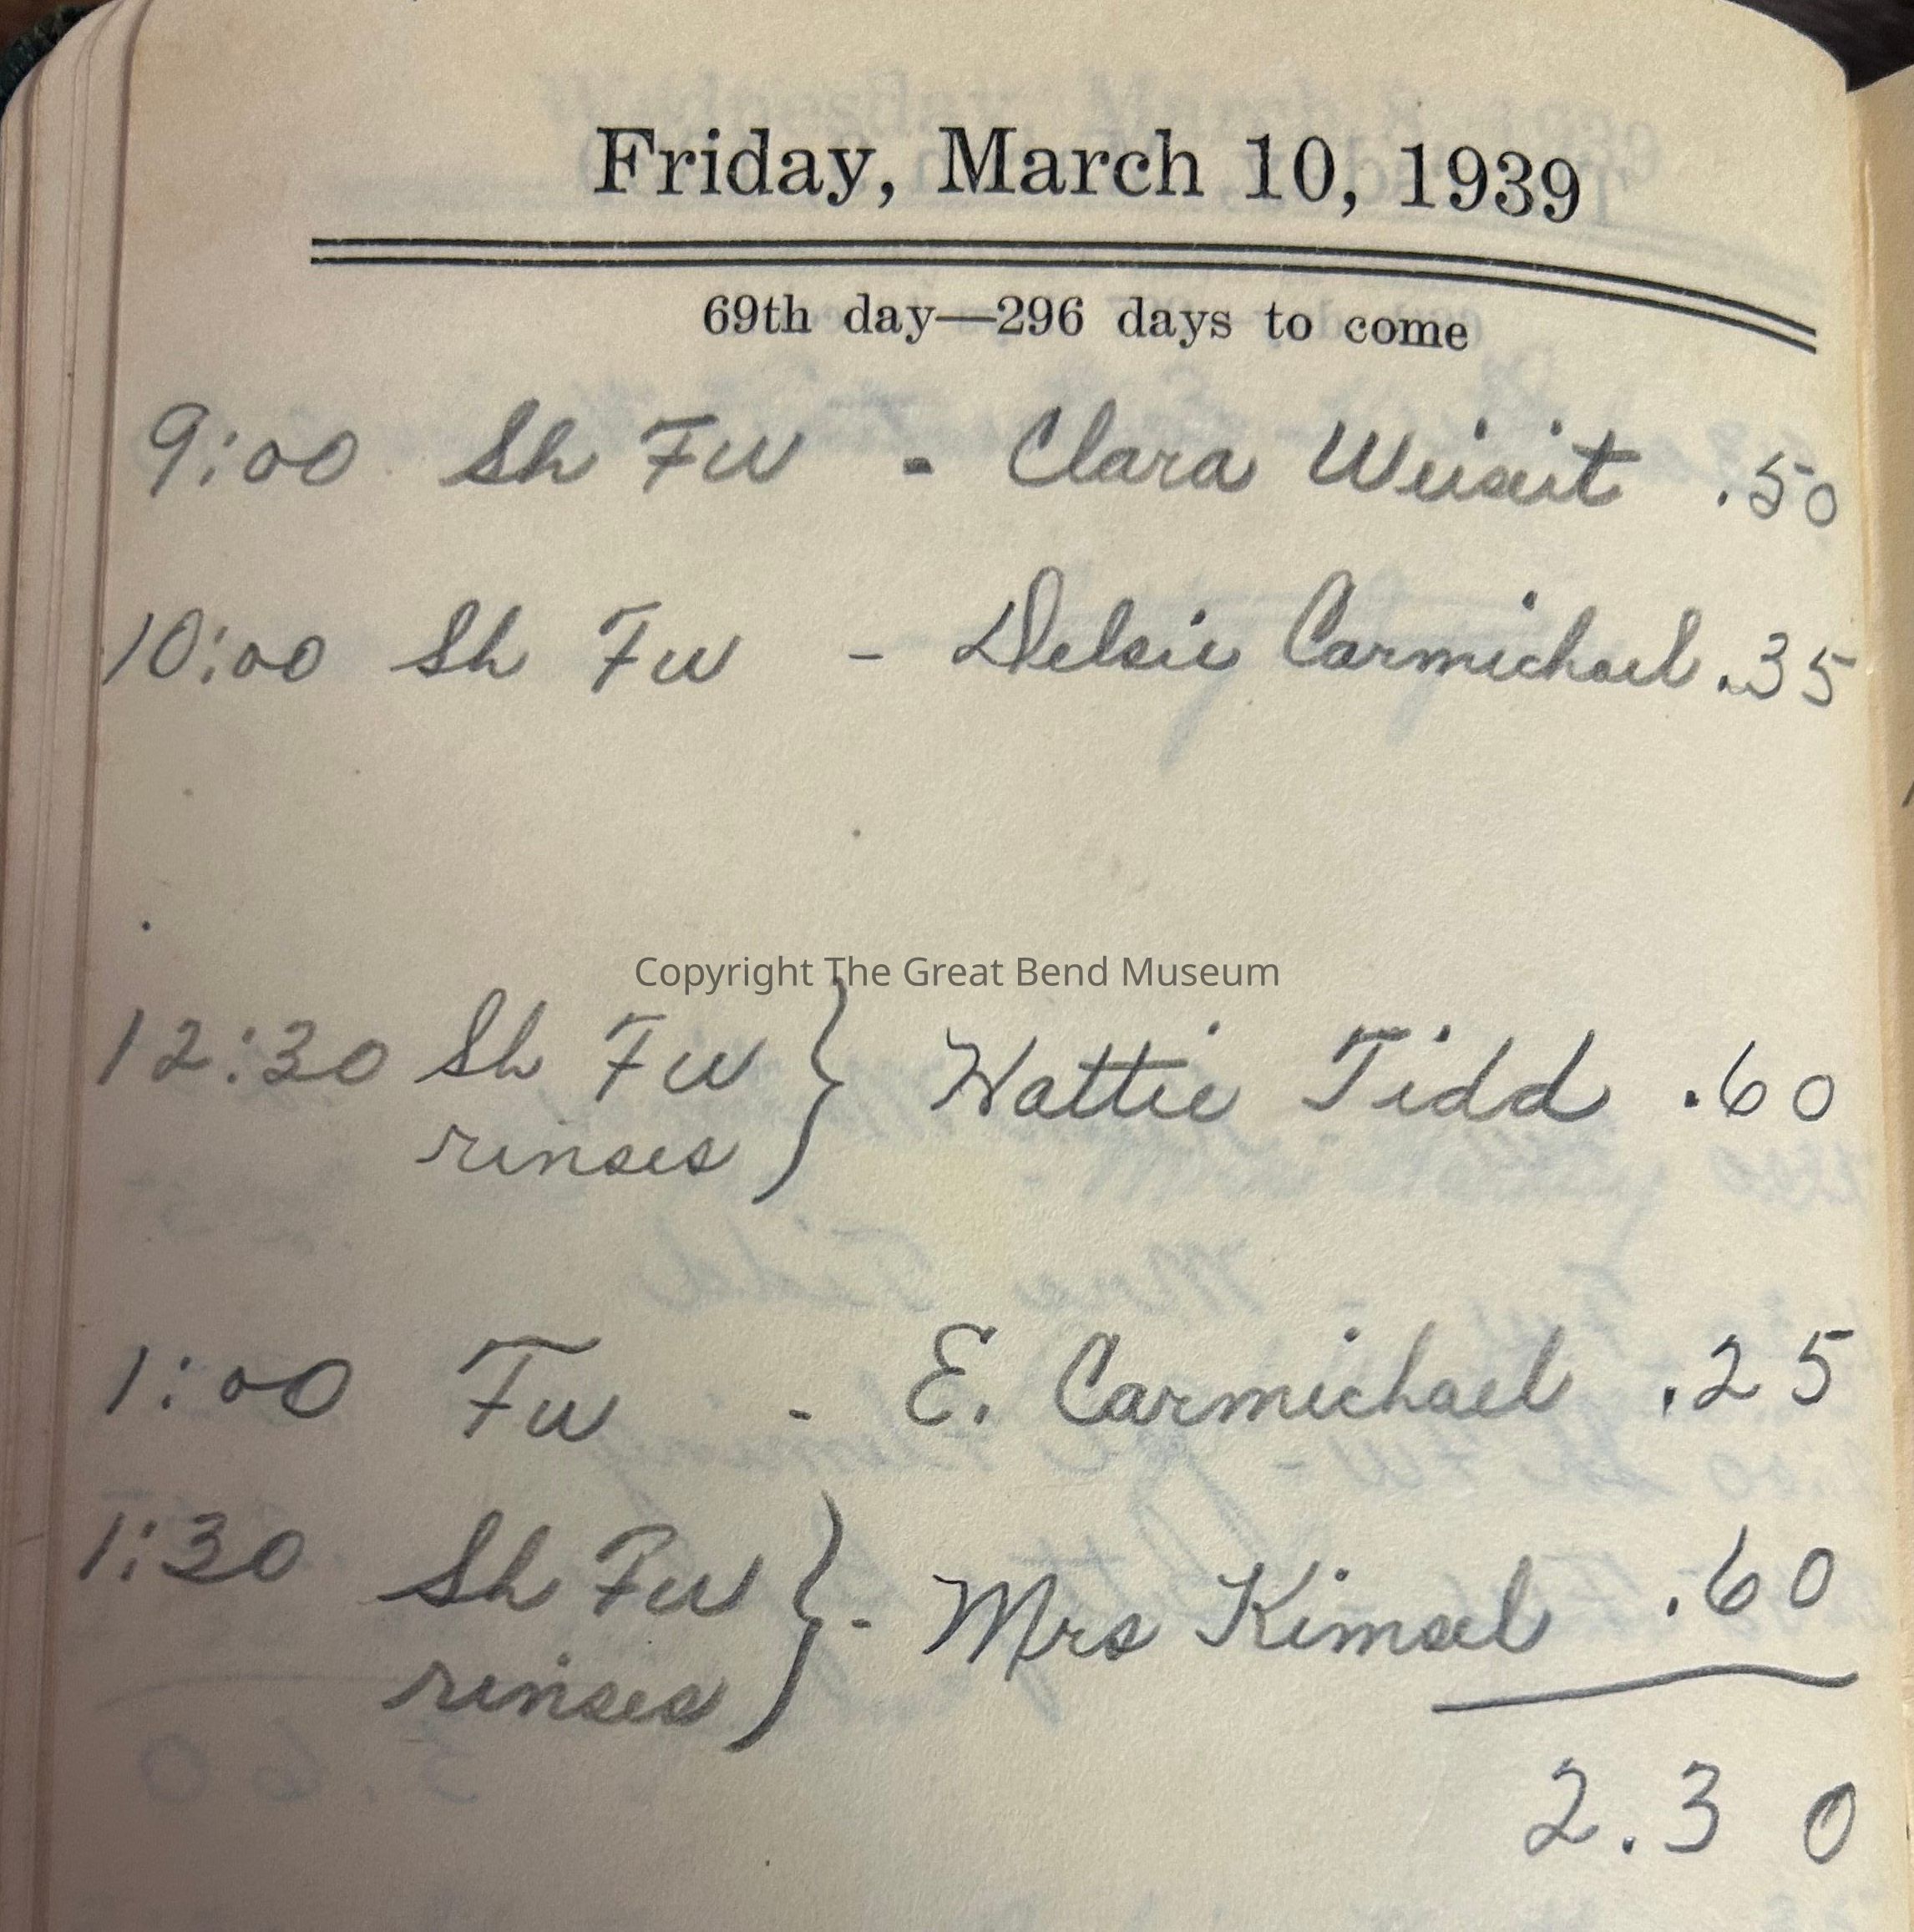 Friday, March 10, 1939
69th day—296 days to come
9:00 Sh Fw - Clara .50
10:00 Sh Fw - Delsie Carmichael .35
Copyright The Great Bend Museum
12:30 Sh Fw } Hattie Tidd .60
rinses
1:00 Fw - E. Carmichael .25
1:30 Sh Fw } - Mrs Kimsel .60
rinses
2.30